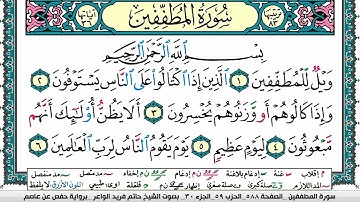 سُورَةُ المُطَفِّفِينَ
بِسْمِ ٱللَّهِ ٱلرَّحْمَٰنِ ٱلرَّحِيمِ
وَيْلٌ لِّلْمُطَفِّفِينَ ١ ٱلَّذِينَ إِذَا ٱكْتَالُوا۟ عَلَى ٱلنَّاسِ يَسْتَوْفُونَ ٢
وَإِذَا كَالُوهُمْ أَو وَّزَنُوهُمْ يُخْسِرُونَ ٣ أَلَا يَظُنُّ أُو۟لَٰٓئِكَ أَنَّهُم
مَّبْعُوثُونَ ٤ لِيَوْمٍ عَظِيمٍ ٥ يَوْمَ يَقُومُ ٱلنَّاسُ لِرَبِّ ٱلْعَٰلَمِينَ ٦
سورة المطففين الصفحة ٥٨٨ الحزب ٥٩ الجزء ٣٠ بصوت الشيخ حاتم فريد الواعر برواية حفص عن عاصم